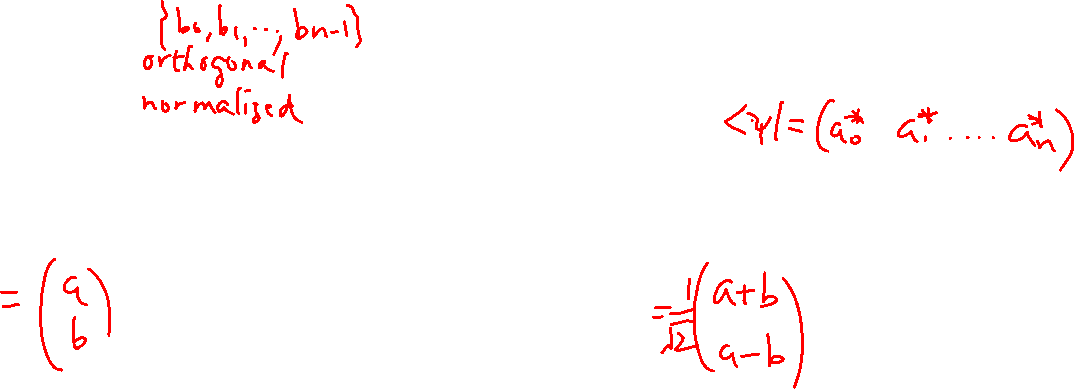 {b₀, b₁, ..., bn-1}
orthogonal
normalized
<ψ| = (a₀* a₁* .... aₙ*)
= (a
b)
= 1/√2 (a+b
a-b)